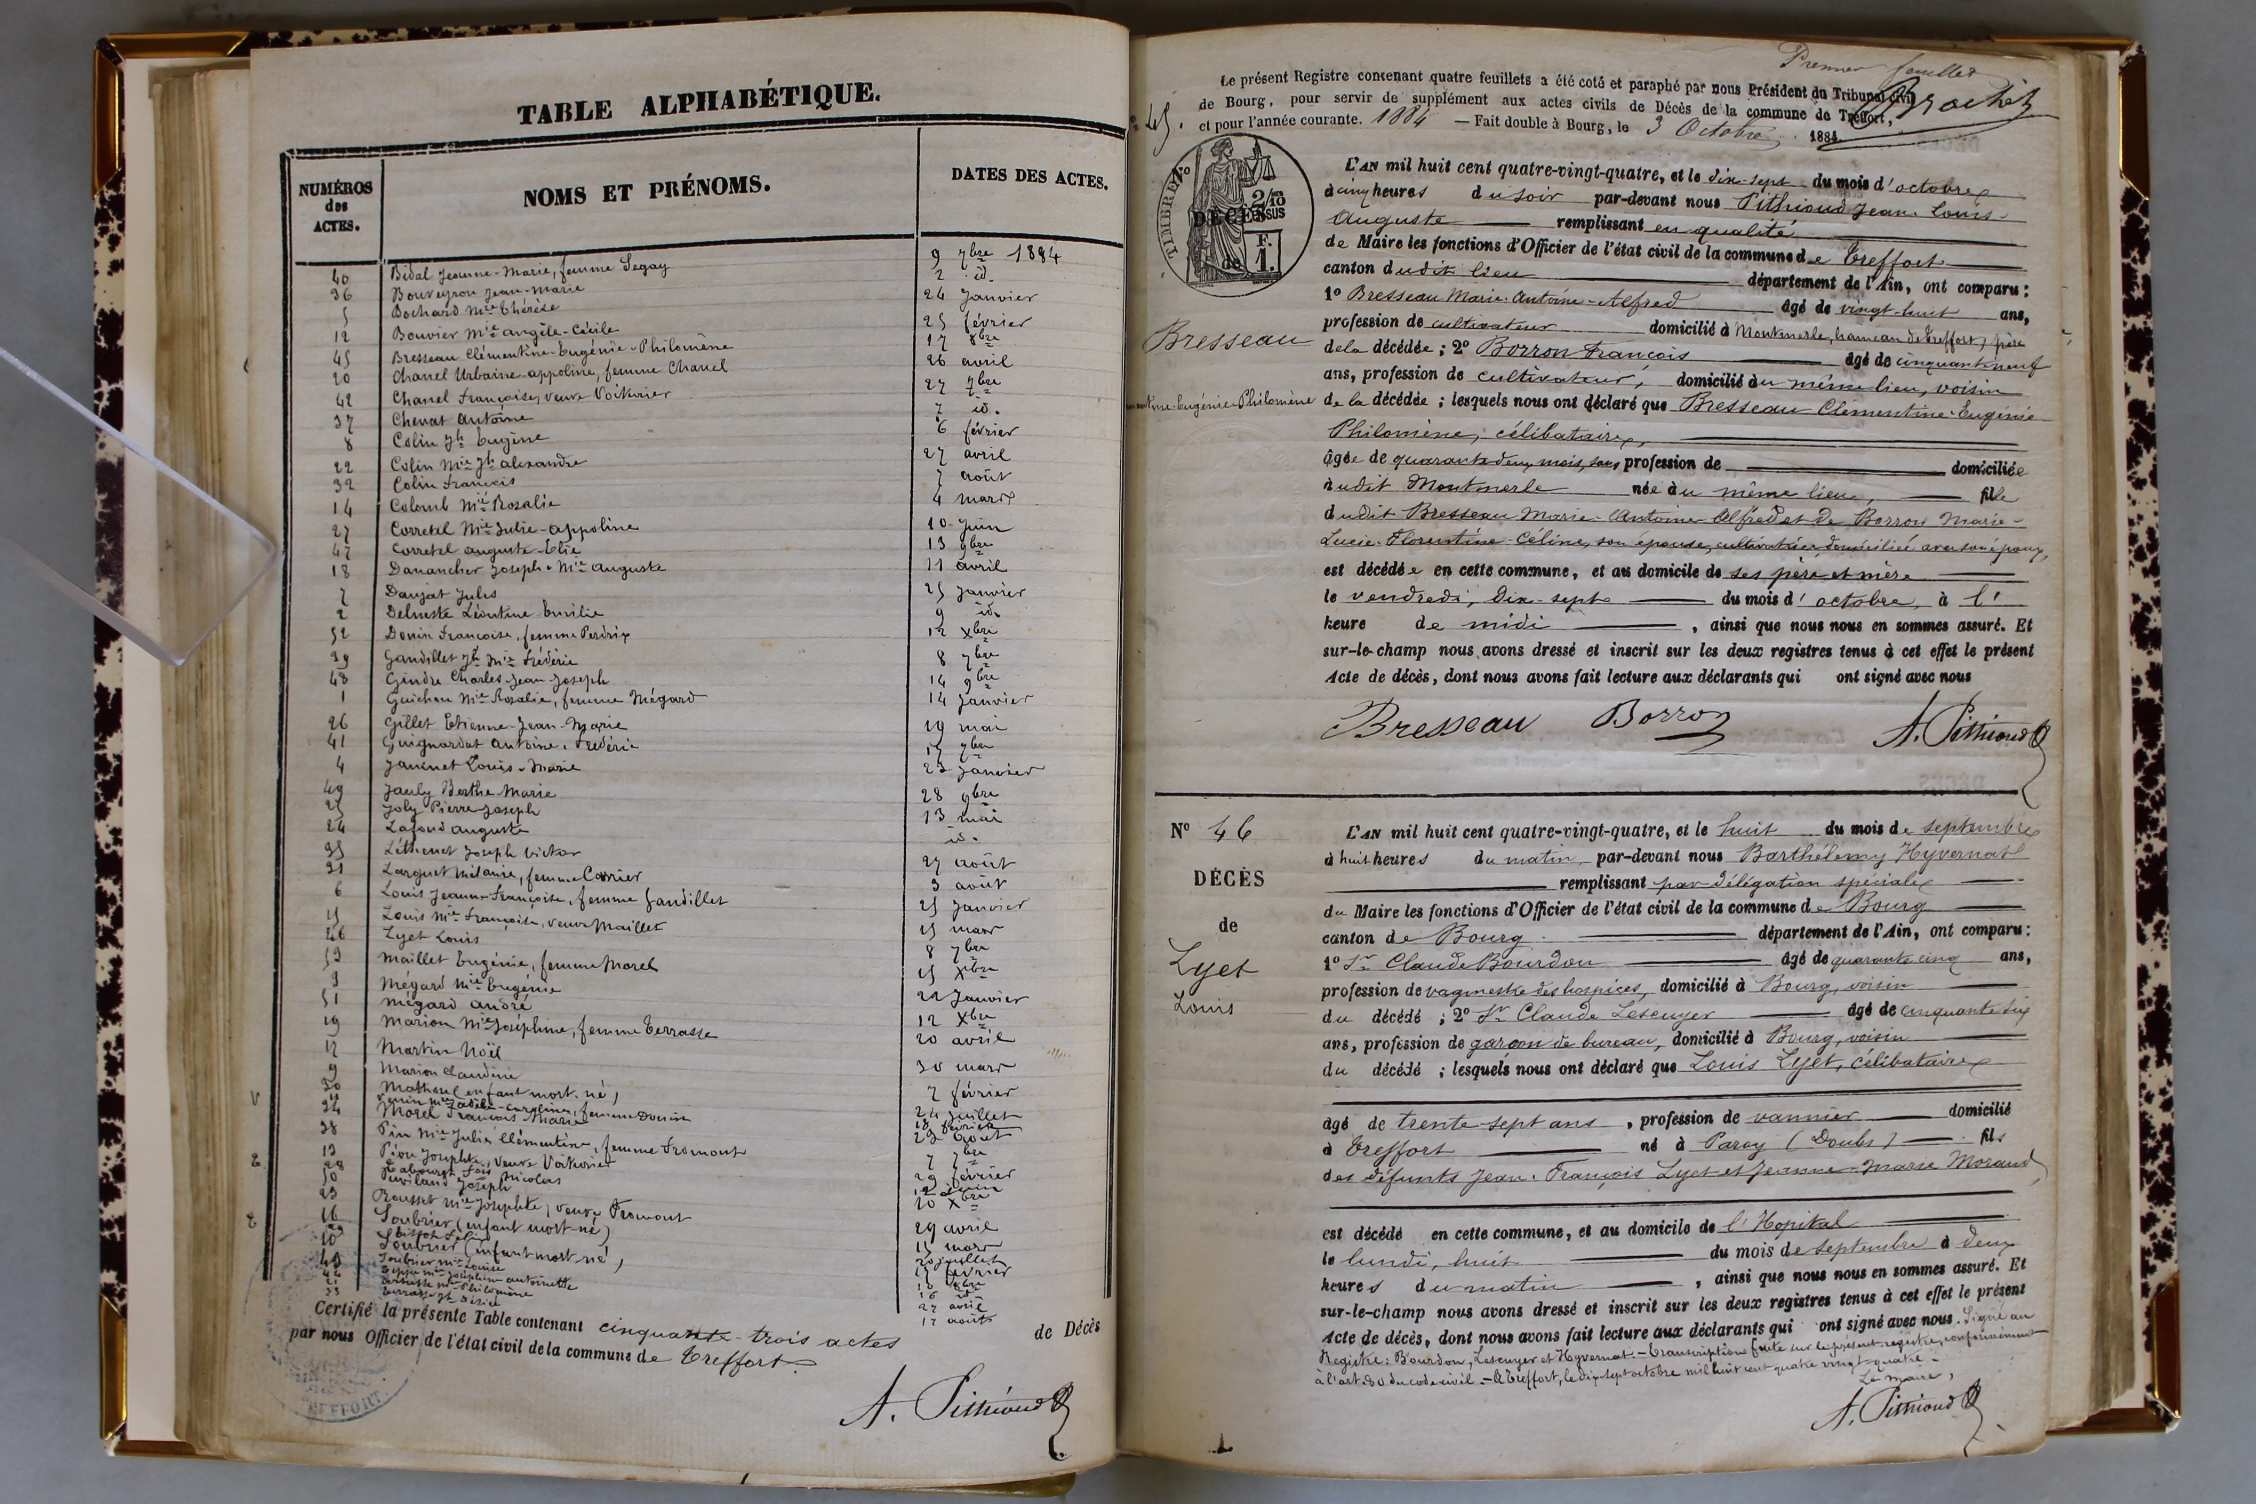 TABLE ALPHABÉTIQUE.
NUMÉROS des ACTES.
NOMS ET PRÉNOMS.
DATES DES ACTES.
40 Bidal Jeanne-Marie, femme Segay 9 7bre 1884
36 Bouveyron Jean-Marie 2 id.
5 Bochard Mie Thérèse 24 Janvier
12 Bouvier Mie angèle-Cécile 25 février
45 Bresseau Clémentine-Eugénie-Philomène 17 8bre
20 Chanel Urbaine-appoline, femme Chanel 26 avril
42 Chanel Françoise, veuve Voiturier 27 7bre
37 Chevat Antoine 7 id.
8 Colin Jh Eugène 6 février
22 Colin Mie Jh alexandre 27 avril
32 Colin François 7 août
14 Colomb Mie Rosalie 4 mars
27 Corretel Mie Julie-appoline 10 Juin
47 Corretel auguste-Elie 13 9bre
18 Danancher Joseph-Mie auguste 11 avril
7 Daujat Jules 25 Janvier
2 Delmeste Léontine Emilie 9 id.
52 Donin Françoise, femme Perdrix 12 Xbre
39 Gandillet Jh Mie Frédéric 8 7bre
48 Gindre Charles-Jean-Joseph 14 9bre
1 Guichon Mie Rosalie, femme Mégard 14 Janvier
26 Gillet Etienne-Jean-Marie 19 mai
41 Guignardat Antoine-Frédéric 17 7bre
4 Janinet Louis-Marie 23 Janvier
49 Jauly Berthe-Marie 28 9bre
25 Joly Pierre-Joseph 13 mai
24 Lafond auguste id.
35 Léthenet Joseph Victor 27 août
31 Larguet Mélanie, femme Carrier 3 août
6 Louis Jeanne-Françoise, femme Gandillet 25 Janvier
15 Louis Mie Françoise, veuve Maillet 15 mars
46 Lyet Louis 8 7bre
53 Maillet Eugénie, femme Morel 15 Xbre
3 Mégard Mie Eugénie 22 Janvier
51 Mégard André 12 Xbre
19 Marion Mie Joséphine, femme Terrasse 20 avril
17 Martin Noël 30 mars
9 Marion Claudine 7 février
30 Mathorel (enfant mort-né) 24 Juillet
34 Morel François Marie 23 août
38 Pin Mie Julie Clémentine, femme Fromont 7 7bre
13 Piou Josephte, veuve Voiturier 29 février
50 Puvilland Joseph Nicolas 10 Xbre
23 Rousset Mie Josephte, veuve Fromont 29 avril
16 Soubrier (enfant mort-né) 15 mars
10 Soubrier (enfant mort-né)
Soubrier Mie Louise
Certifié la présente Table contenant cinquante-trois actes de Décès
par nous Officier de l'état civil de la commune de Treffort.
A. Pithioud
Premier feuillet
Le présent Registre contenant quatre feuillets a été coté et paraphé par nous Président du Tribunal civil
de Bourg, pour servir de supplément aux actes civils de Décès de la commune de Treffort,
et pour l'année courante. 1884 — Fait double à Bourg, le 3 Octobre 1884.
Brochet
45.
TIMBRE
2/10 EN SUS
F. 1.
DÉCÈS
de
Bresseau
Eugénie-Philomène
L'AN mil huit cent quatre-vingt-quatre, et le dix-sept du mois d'octobre
à cinq heures du soir par-devant nous Pithioud Jean-Louis-
Auguste remplissant en qualité
de Maire les fonctions d'Officier de l'état civil de la commune de Treffort
canton dudit lieu département de l'Ain, ont comparu:
1° Bresseau Marie-Antoine-Alfred âgé de vingt-huit ans,
profession de cultivateur domicilié à Montmerle, hameau de Treffort, père
de la décédée; 2° Borron François âgé de cinquante-neuf
ans, profession de cultivateur, domicilié au même lieu, voisin
de la décédée; lesquels nous ont déclaré que Bresseau Clémentine-Eugénie
Philomène, célibataire,
âgée de quarante-deux mois, sans profession de domiciliée
audit Montmerle née au même lieu, fille
dudit Bresseau Marie-Antoine-Alfred et de Borron Marie-
Lucie-Florentine-Céline, son épouse, cultivatrice domiciliée avec son époux,
est décédée en cette commune, et au domicile de ses père et mère
le vendredi, dix-sept du mois d'octobre, à l'
heure de midi, ainsi que nous nous en sommes assuré. Et
sur-le-champ nous avons dressé et inscrit sur les deux registres tenus à cet effet le présent
Acte de décès, dont nous avons fait lecture aux déclarants qui ont signé avec nous
Bresseau Borron A. Pithioud
N° 46
DÉCÈS
de
Lyet
Louis
L'AN mil huit cent quatre-vingt-quatre, et le huit du mois de septembre
à huit heures du matin, par-devant nous Barthélemy Hyvernat
remplissant par délégation spéciale
du Maire les fonctions d'Officier de l'état civil de la commune de Bourg
canton de Bourg département de l'Ain, ont comparu:
1° Sr Claude Bourdon âgé de quarante cinq ans,
profession de vagmestre des hospices, domicilié à Bourg, voisin
du décédé; 2° Sr Claude Lescuyer âgé de cinquante six
ans, profession de garçon de bureau, domicilié à Bourg, voisin
du décédé; lesquels nous ont déclaré que Louis Lyet, célibataire
âgé de trente-sept ans, profession de vannier domicilié
à Treffort né à Paroy (Doubs) fils
des défunts Jean-François Lyet et Jeanne-Marie Morand,
est décédé en cette commune, et au domicile de l'Hôpital
le lundi, huit du mois de septembre à deux
heures du matin, ainsi que nous nous en sommes assuré. Et
sur-le-champ nous avons dressé et inscrit sur les deux registres tenus à cet effet le présent
Acte de décès, dont nous avons fait lecture aux déclarants qui ont signé avec nous. Signé au
Registre: Bourdon, Lescuyer et Hyvernat. – Transcription faite sur le présent registre, conformément
à l'art. 80 du code civil. – A Treffort, le dix-sept octobre mil huit cent quatre vingt quatre.
Le Maire,
A. Pithioud